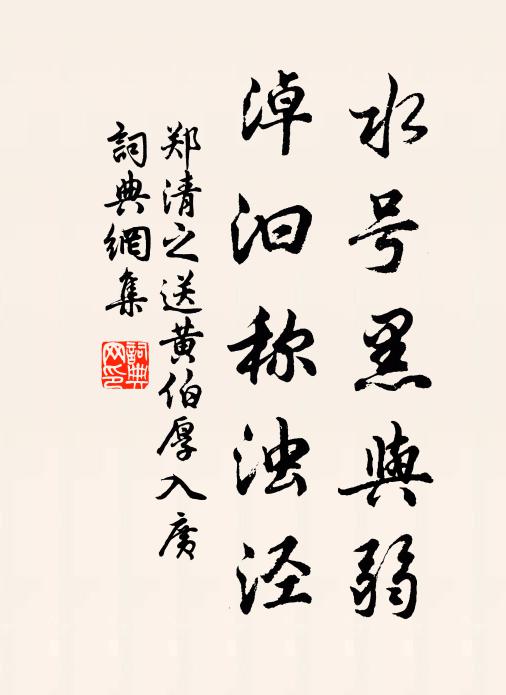 水号黑與弱
淖汩称浊泾
郑清之送黄伯厚入廣
詞典網集
詞典
网印